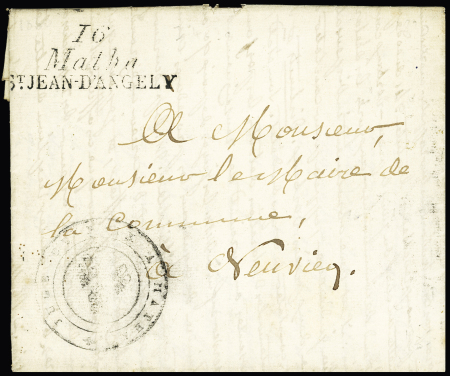 16
Matha
ST JEAN-D'ANGELY
A Monsieur,
Monsieur le Maire de
la Commune,
à Neuvicq.
JUGE DE
MATHA